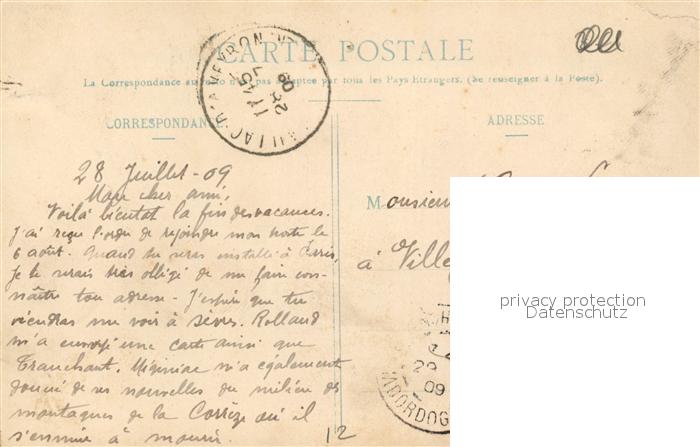 CARTE POSTALE
La Correspondance au recto n'est pas acceptée par tous les Pays Etrangers. (Se renseigner à la Poste).
CORRESPONDANCE
ADRESSE
28 Juillet - 09
Mon cher ami,
Voilà bientot la fin des vacances.
J'ai reçu l'ordre de rejoindre mon poste le
6 août. Quand tu seras installé à Paris,
Je te serais très obligé de me faire con-
naître ton adresse - J'espère que tu
viendras me voir à Sèvres. Rolland
m'a envoyé une carte ainsi que
Tranchant. Migniac m'a également
donné de ses nouvelles du milieu des
montagnes de la Corrèze où il
s'ennuie à mourir.
12
Monsieur
à Ville
AVEYRON
11 45
28 7
09
29
09
DORDOG
privacy protection
Datenschutz